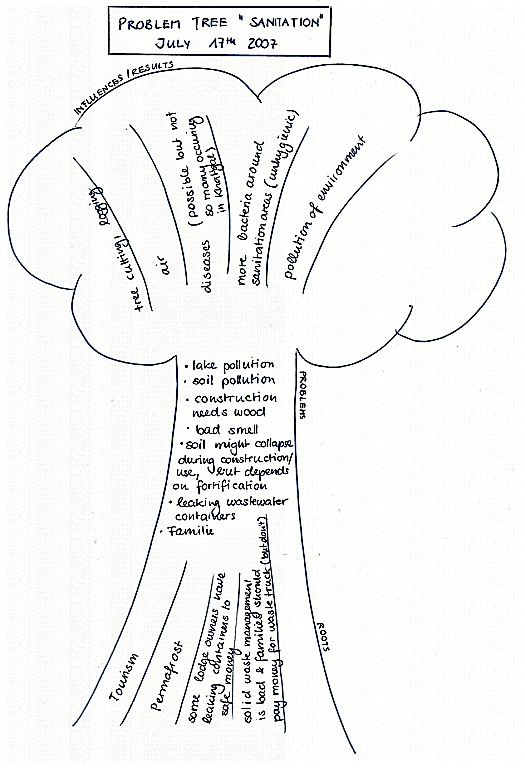 PROBLEM TREE "SANITATION"
JULY 17th 2007
INFLUENCES/RESULTS
tree cutting/ logging
air
diseases (possible but not
so many occuring
in Khatgal)
more bacteria around
sanitation areas (unhygienic)
pollution of environment
PROBLEMS
· lake pollution
· soil pollution
· construction
needs wood
· bad smell
· soil might collapse
during construction/
use, but depends
on fortification
· leaking wastewater
containers
· Familie
ROOTS
Tourism
Permafrost
some lodge owners have
leaking containers to
safe money
solid waste management
is bad & families should
pay money for waste truck (but don't)